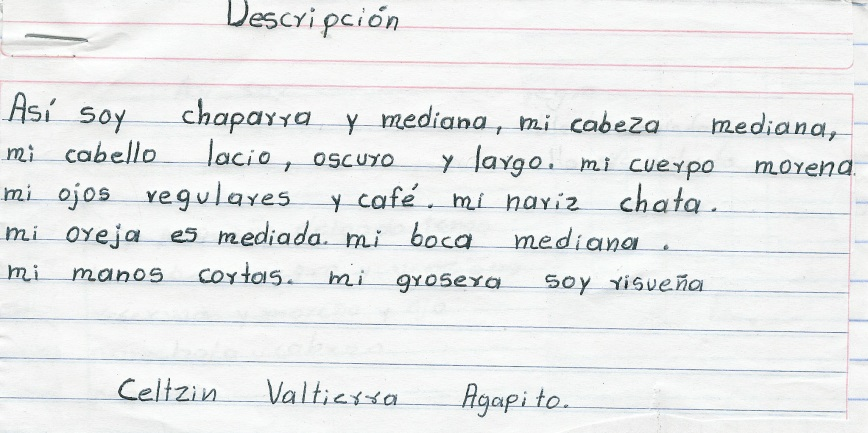 Descripción
Así soy chaparra y mediana, mi cabeza mediana,
mi cabello lacio, oscuro y largo. mi cuerpo morena
mi ojos regulares y café. mi nariz chata.
mi oreja es mediada. mi boca mediana.
mi manos cortas. mi grosera soy risueña
Celtzin Valtierra Agapito.